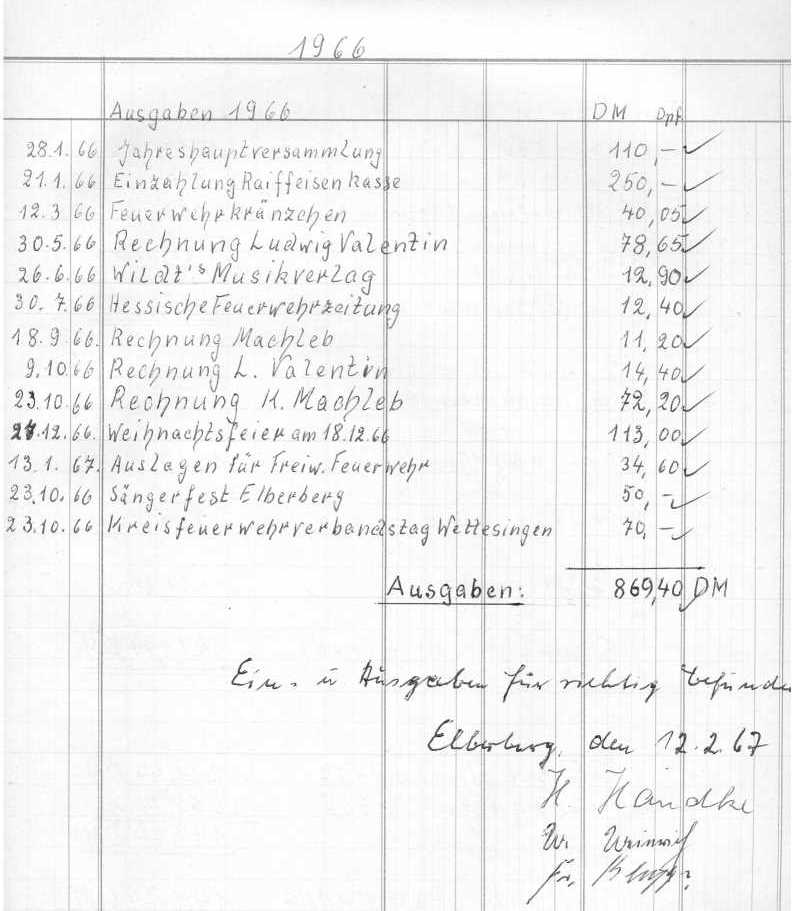 1966
Ausgaben 1966 DM Dpf.
28.1.66 Jahreshauptversammlung 110,-
21.1.66 Einzahlung Raiffeisenkasse 250,-
12.3 66 Feuerwehrkränzchen 40,05
30.5.66 Rechnung Ludwig Valentin 78,65
26.6.66 Wildt's Musikverlag 12,90
30.7.66 Hessische Feuerwehrzeitung 12,40
18.9.66. Rechnung Machleb 11,20
9.10.66 Rechnung L. Valentin 14,40
23.10.66 Rechnung H. Machleb 72,20
27.12.66. Weihnachtsfeier am 18.12.66 113,00
13.1.67. Auslagen für Freiw. Feuerwehr 34,60
23.10.66 Sängerfest Elberberg 50,-
23.10.66 Kreisfeuerwehrverbandstag Wettesingen 70,-
Ausgaben: 869,40 DM
Ein- u Ausgaben für richtig befunde
Elberberg, den 12.2.67
H. Händke
W.
Fr.